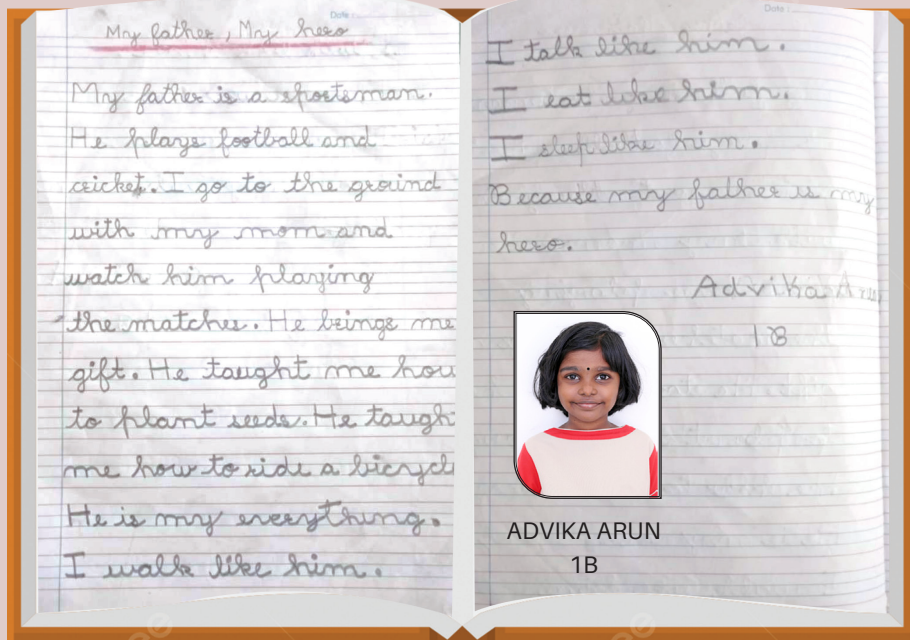 Date :
My father, My hero
My father is a sportsman.
He plays football and
cricket. I go to the ground
with my mom and
watch him playing
the matches. He brings me
gift. He taught me how
to plant seeds. He taugh
me how to ride a bicycl
He is my everything.
I walk like him.
Date :
I talk like him.
I eat like him.
I sleep like him.
Because my father is my
hero.
Advika Arun
1B
ADVIKA ARUN
1B